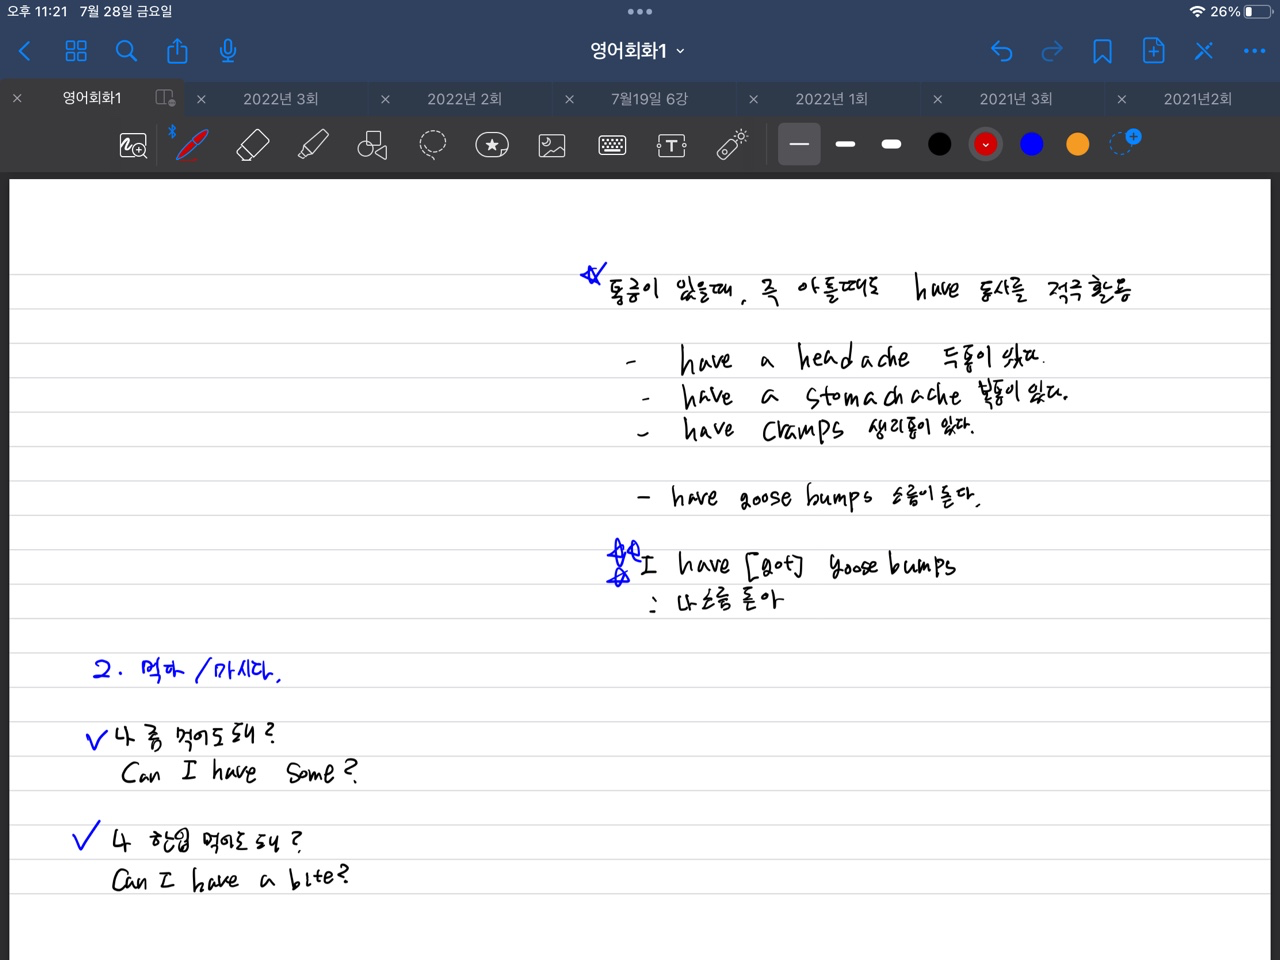 오후 11:21 7월 28일 금요일
26%
영어회화1
영어회화1 2022년 3회 2022년 2회 7월19일 6강 2022년 1회 2021년 3회 2021년2회
T
통증이 있을때, 즉 아플때도 have 동사를 적극 활용
- have a headache 두통이 있다.
- have a stomachache 복통이 있다.
- have cramps 생리통이 있다.
- have goose bumps 소름이 돋다.
I have [got] goose bumps
: 나 소름 돋아
2. 먹다 / 마시다.
나 좀 먹어도 돼?
Can I have some?
나 한입 먹어도 돼?
Can I have a bite?